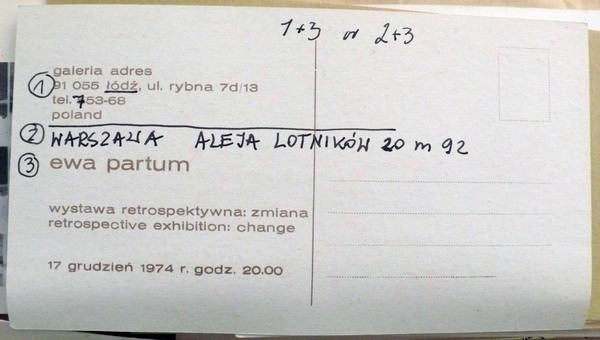 1+3 or 2+3
galeria adres
1 91 055 łódź, ul. rybna 7d/13
tel. 753-68
poland
2 WARSZAWA ALEJA LOTNIKÓW 20 m 92
3 ewa partum
wystawa retrospektywna: zmiana
retrospective exhibition: change
17 grudzień 1974 r. godz. 20.00